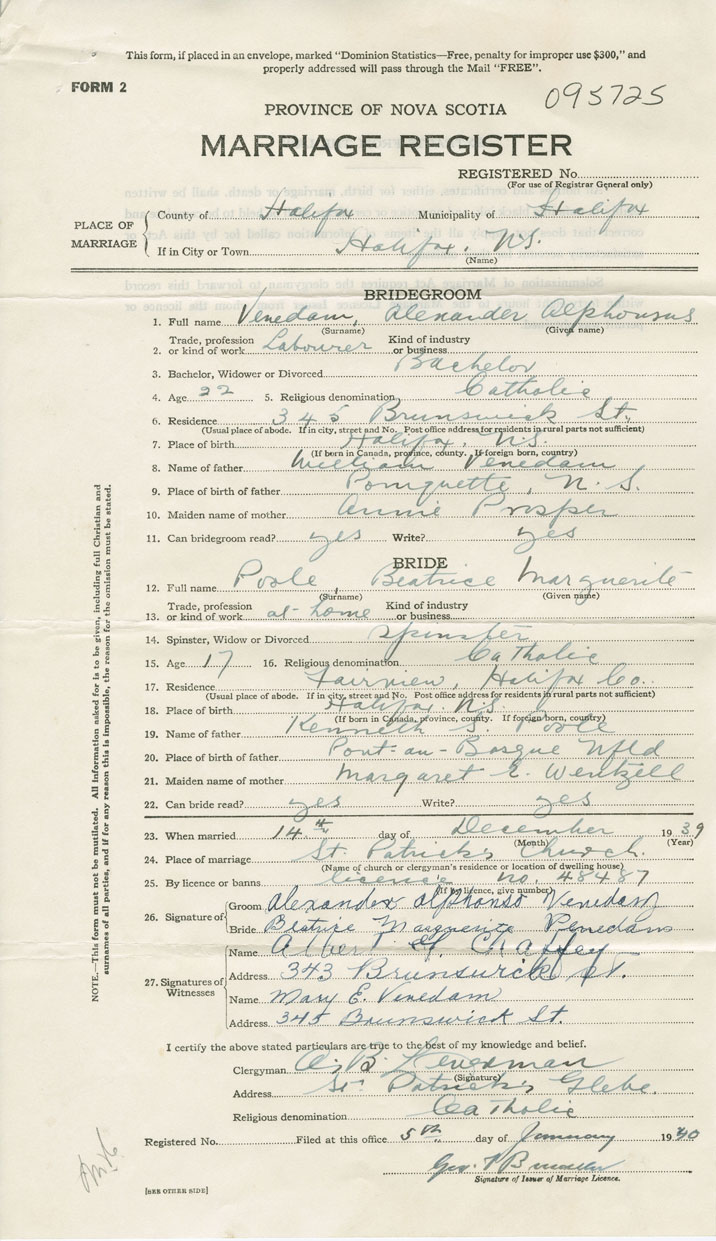 This form, if placed in an envelope, marked "Dominion Statistics—Free, penalty for improper use $300," and
properly addressed will pass through the Mail "FREE".
FORM 2
095725
PROVINCE OF NOVA SCOTIA
MARRIAGE REGISTER
REGISTERED No.
(For use of Registrar General only)
PLACE OF MARRIAGE
County of Halifax Municipality of Halifax
If in City or Town Halifax, N.S.
(Name)
BRIDEGROOM
1. Full name Venedam, Alexander Alphonsus
(Surname) (Given name)
2. Trade, profession or kind of work Labourer Kind of industry or business
3. Bachelor, Widower or Divorced Bachelor
4. Age 22 5. Religious denomination Catholic
6. Residence 345 Brunswick St.
(Usual place of abode. If in city, street and No. Post office address for residents in rural parts not sufficient)
7. Place of birth Halifax, N.S.
(If born in Canada, province, county. If foreign born, country)
8. Name of father William Venedam
9. Place of birth of father Pomquette, N. S.
10. Maiden name of mother Annie Prosper
11. Can bridegroom read? yes Write? yes
BRIDE
12. Full name Poole, Beatrice Marguerite
(Surname) (Given name)
13. Trade, profession or kind of work at-home Kind of industry or business
14. Spinster, Widow or Divorced Spinster
15. Age 17 16. Religious denomination Catholic
17. Residence Fairview, Halifax Co.
(Usual place of abode. If in city, street and No. Post office address for residents in rural parts not sufficient)
18. Place of birth Halifax N.S.
(If born in Canada, province, county. If foreign born, country)
19. Name of father Kenneth S. Poole
20. Place of birth of father Pont-au-Basque Nfld
21. Maiden name of mother Margaret E. Wentzell
22. Can bride read? yes Write? yes
23. When married 14th day of December 1939
(Month) (Year)
24. Place of marriage St. Patrick's Church.
(Name of church or clergyman's residence or location of dwelling house)
25. By licence or banns licence no. 48487
(If by licence, give number)
26. Signature of
Groom Alexander Alphonso Venedam
Bride Beatrice Marguerite Venedam
27. Signatures of Witnesses
Name Albert H. Chaffey
Address 343 Brunswick St.
Name Mary E. Venedam
Address 345 Brunswick St.
I certify the above stated particulars are true to the best of my knowledge and belief.
Clergyman
(Signature)
Address St. Patrick's Glebe.
Religious denomination Catholic
Registered No. Filed at this office 5th day of January 1940
Signature of Issuer of Marriage Licence.
[SEE OTHER SIDE]
NOTE.—This form must not be mutilated. All information asked for is to be given, including full Christian and
surnames of all parties, and if for any reason this is impossible, the reason for the omission must be stated.